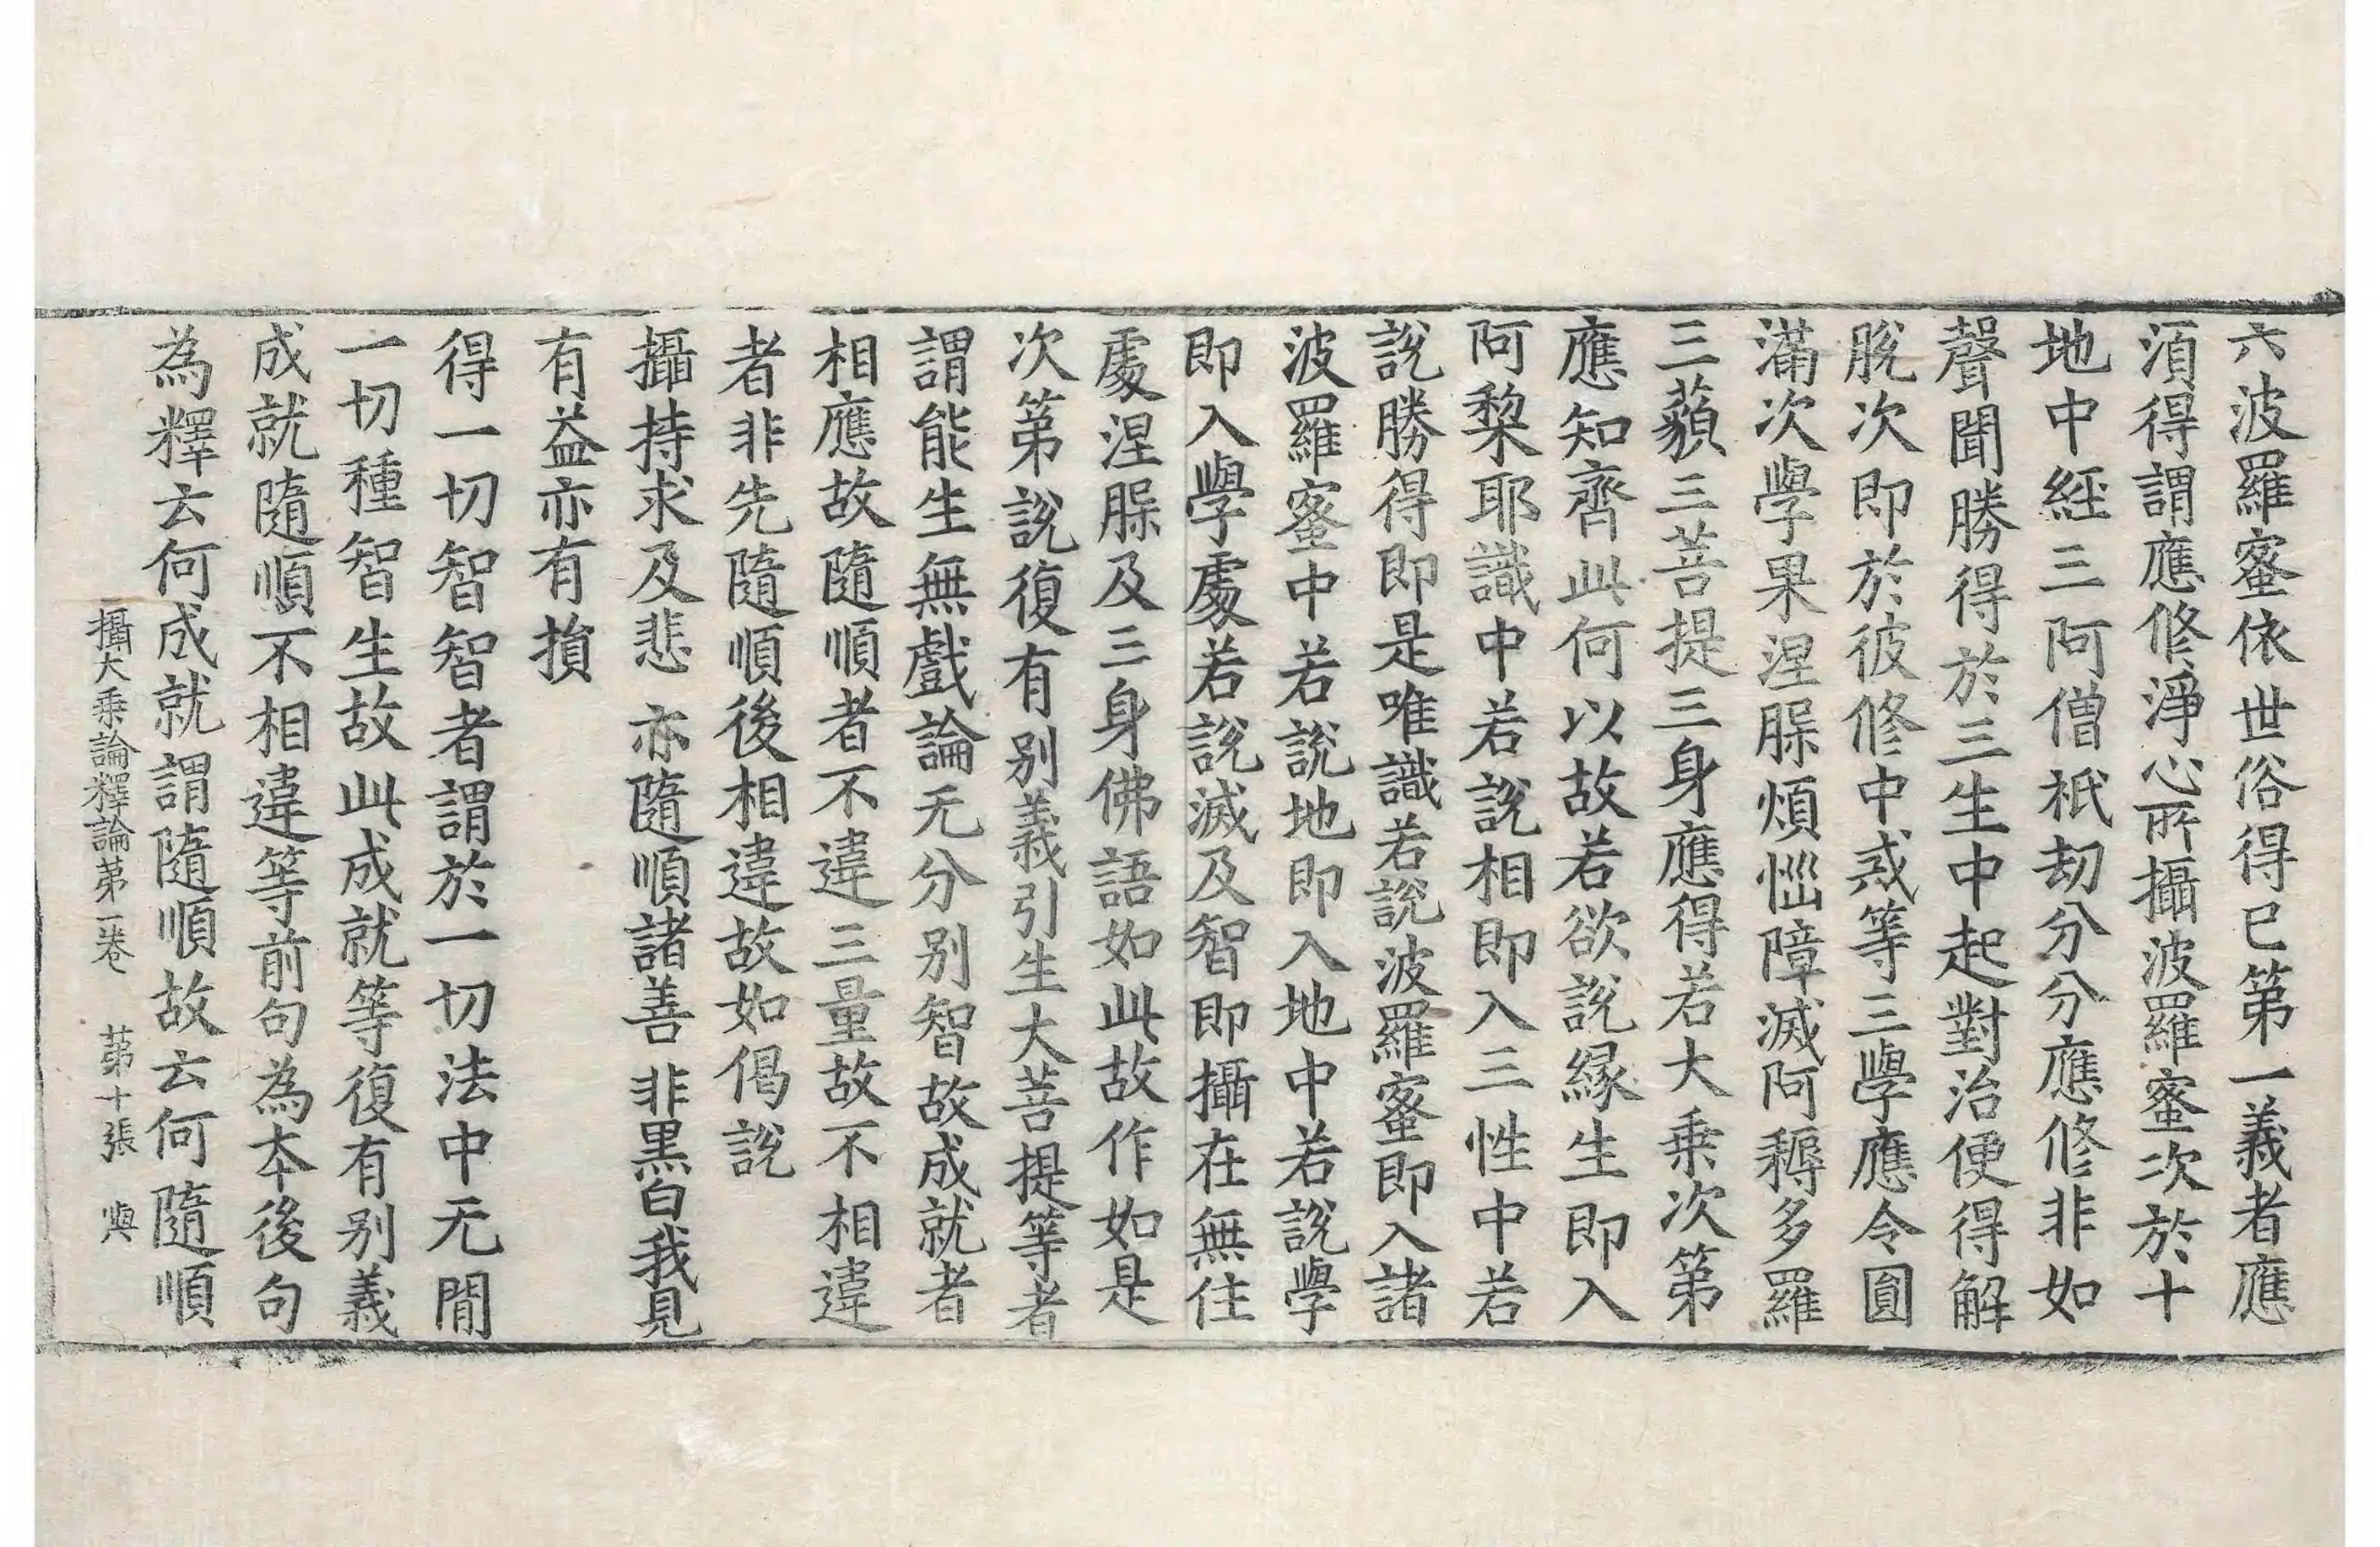 六波羅蜜依世俗得已第一義者應
湏得謂應修淨心所攝波羅蜜次於十
地中經三阿僧祇劫分分應修非如
聲聞勝得於三生中起對治便得解
脫次即於彼修中戒等三學應令圓
滿次學果涅槃煩惱障滅阿耨多羅
三藐三菩提三身應得若大乗次第
應知齊此何以故若欲說緣生即入
阿棃耶識中若說相即入三性中若
說勝得即是唯識若說波羅蜜即入諸
波羅蜜中若說地即入地中若說學
即入學處若說滅及智即攝在無住
處涅槃及三身佛語如此故作如是
次第說復有别義引生大菩提等者
謂能生無戲論无分别智故成就者
相應故隨順者不違三量故不相違
者非先隨順後相違故如偈說
攝持求及悲亦隨順諸善非黑白我見
有益亦有損
得一切智智者謂於一切法中无閒
一切種智生故此成就等復有别義
成就隨順不相違等前句為本後句
為釋云何成就謂隨順故云何隨順
攝大乗論釋論第一卷 第十張